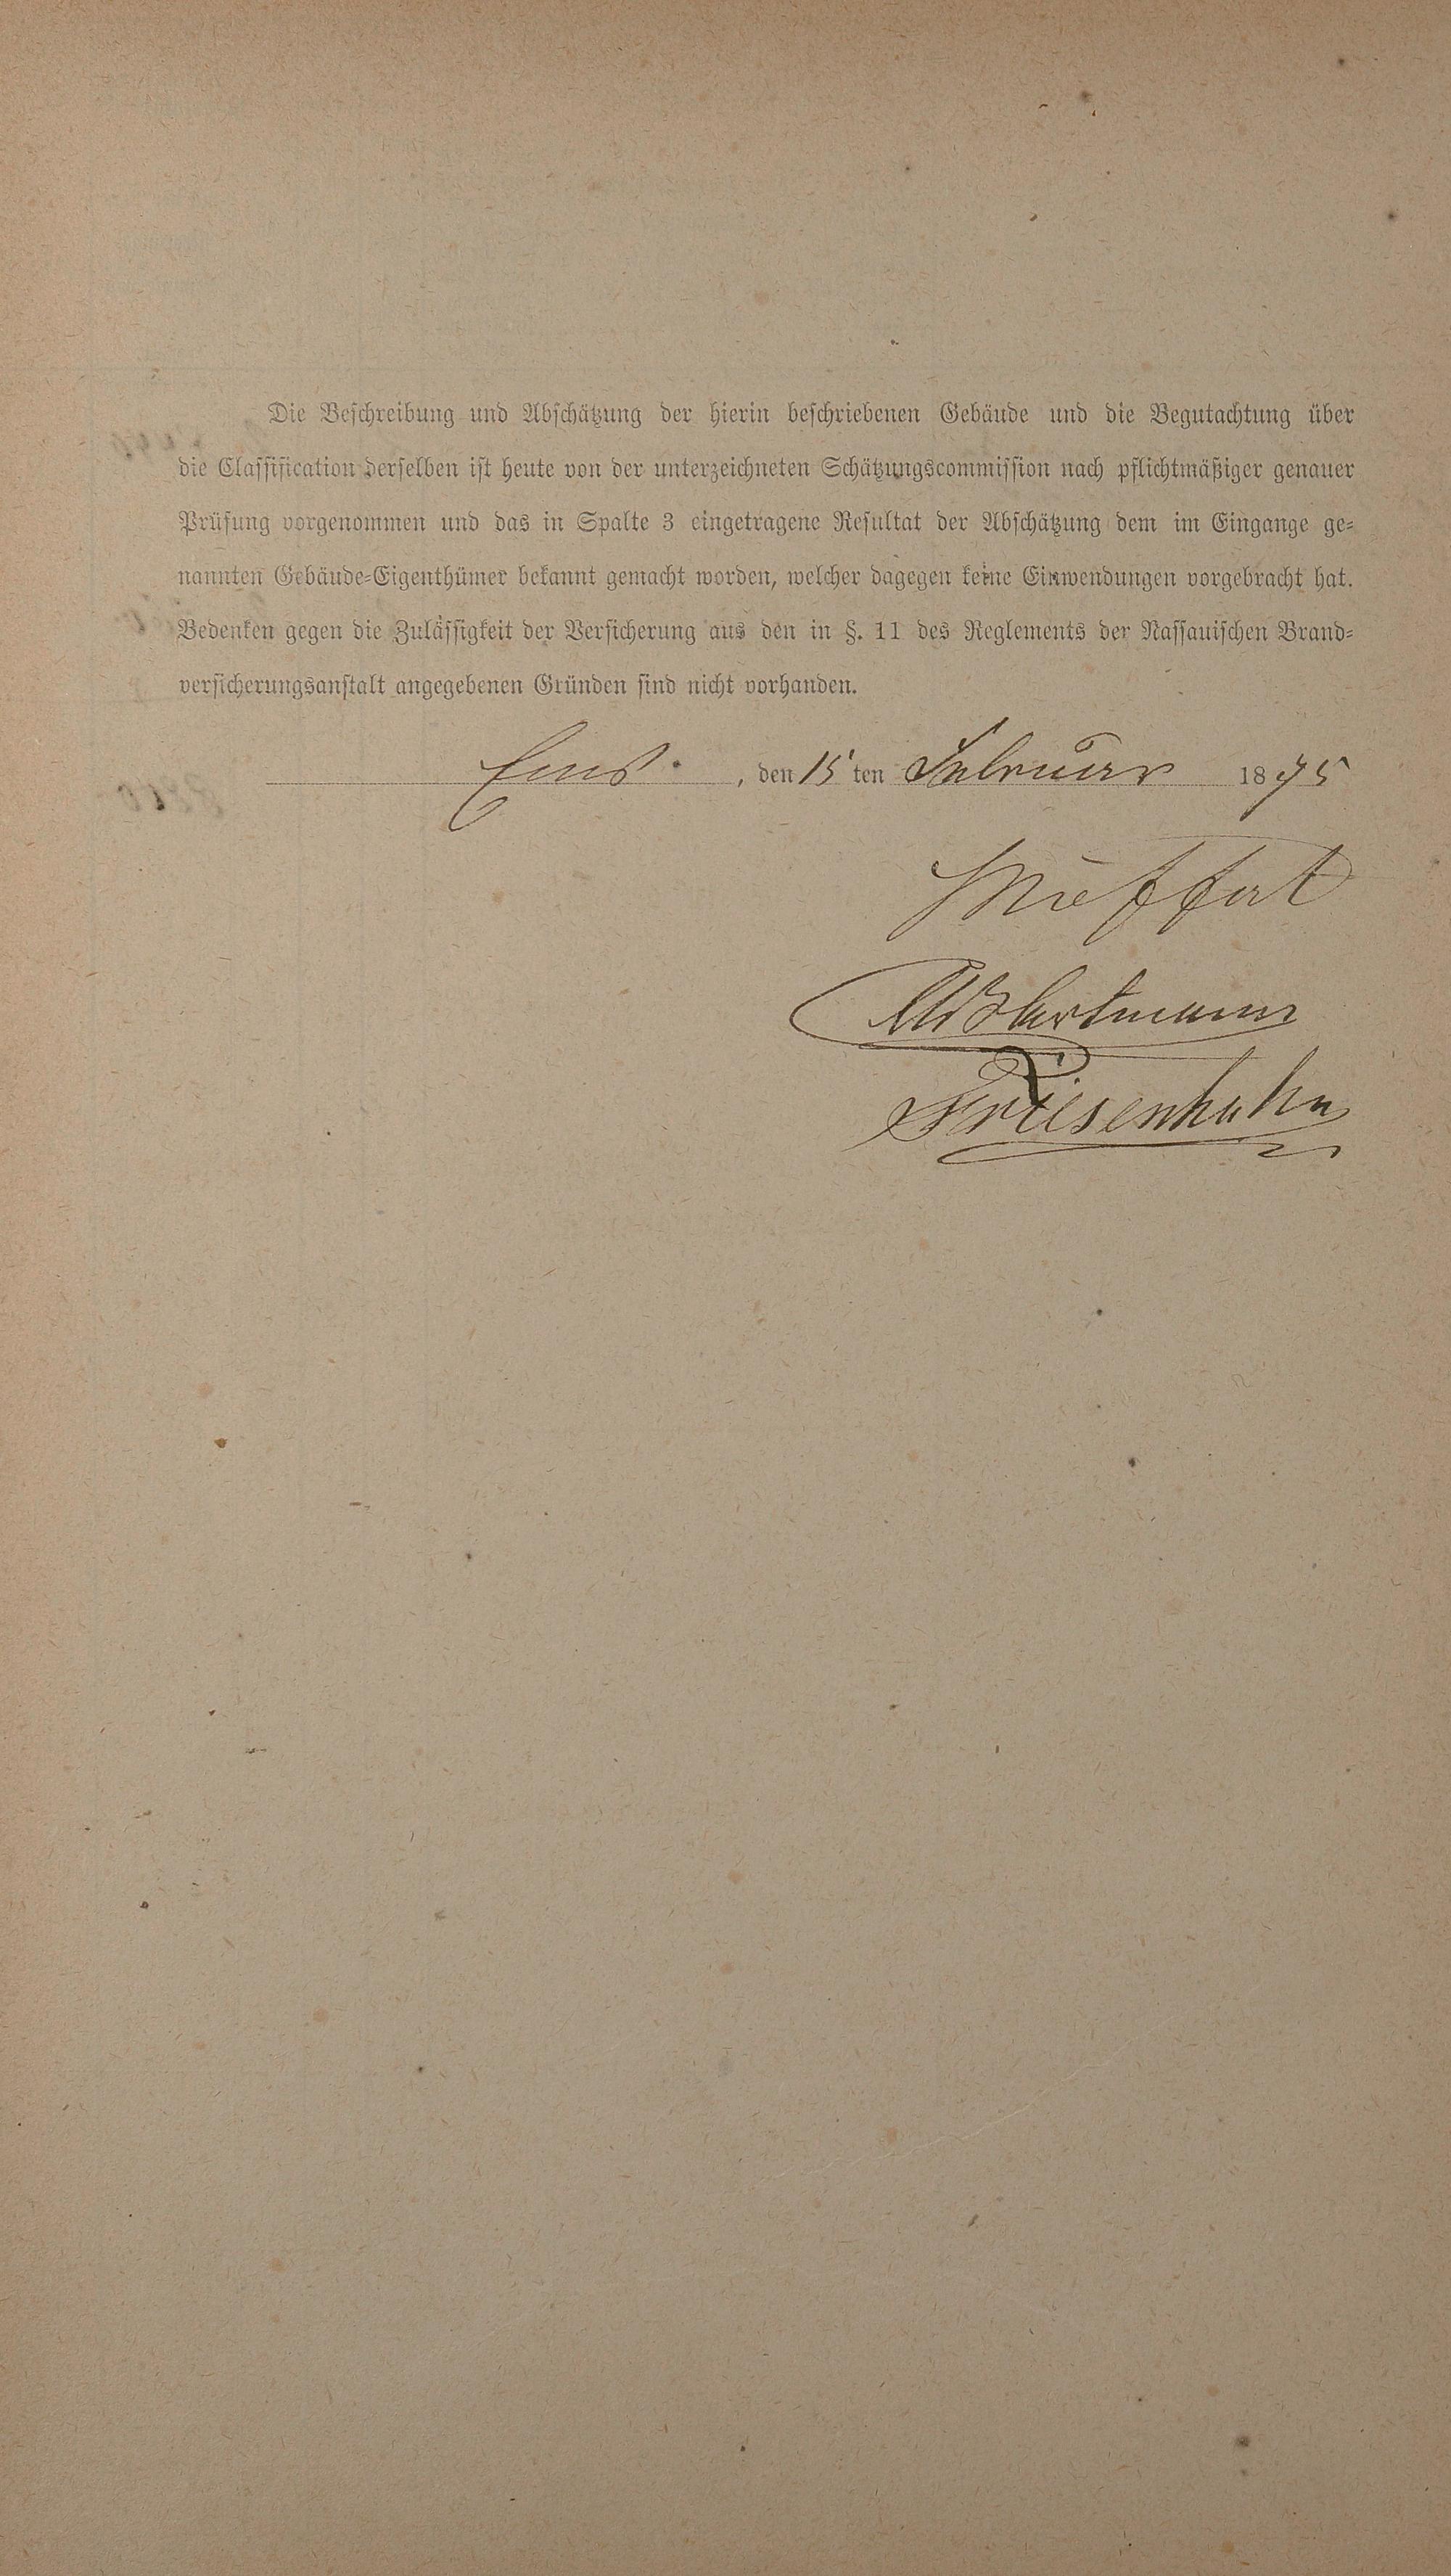 Die Beschreibung und Abschätzung der hierin beschriebenen Gebäude und die Begutachtung über
die Classification derselben ist heute von der unterzeichneten Schätzungscommission nach pflichtmäßiger genauer
Prüfung vorgenommen und das in Spalte 3 eingetragene Resultat der Abschätzung dem im Eingange ge-
nannten Gebäude-Eigenthümer bekannt gemacht worden, welcher dagegen keine Einwendungen vorgebracht hat.
Bedenken gegen die Zulässigkeit der Versicherung aus den in §. 11 des Reglements der Nassauischen Brand-
versicherungsanstalt angegebenen Gründen sind nicht vorhanden.
Ems. , den 15 ten Februar 1875
Muffat
Hartmann
Friesenhahn